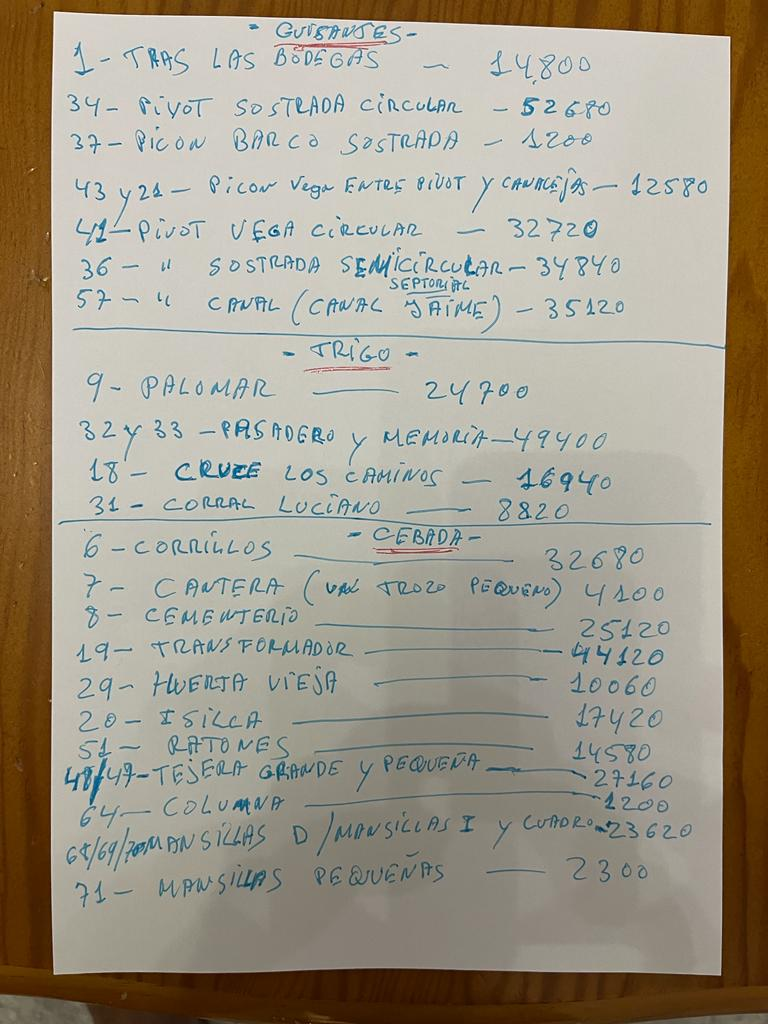 - GUISANTES -
1- TRAS LAS BODEGAS — 14,800
34- PIVOT SOSTRADA CIRCULAR - 52680
37- PICON BARCO SOSTRADA - 1200
43 y 21 - PICON Vega ENTRE PIVOT Y CANALEJAS - 12580
41- PIVOT VEGA CIRCULAR — 32720
36 - " SOSTRADA SEMICIRCULAR - 34840
SEPTORIAL
57 - " CANAL (CANAL JAIME) - 35120
- TRIGO -
9- PALOMAR — 24700
32 y 33 - PASADERO y MEMORIA - 49400
18 - CRUCE LOS CAMINOS — 16940
31 - CORRAL LUCIANO — 8820
- CEBADA -
6 - CORRILLOS — 32680
7 - CANTERA (UN TROZO PEQUEÑO) 4100
8 - CEMENTERIO — 25120
19- TRANSFORMADOR — 44120
29- HUERTA VIEJA — 10060
20 - ISILLA — 17420
51- RATONES — 14580
48/47- TEJERA GRANDE y PEQUEÑA — 27160
64- COLUMNA — 1200
68/69/70 MANSILLAS D / MANSILLAS I y CUADRO - 23620
71 - MANSILLAS PEQUEÑAS — 2300